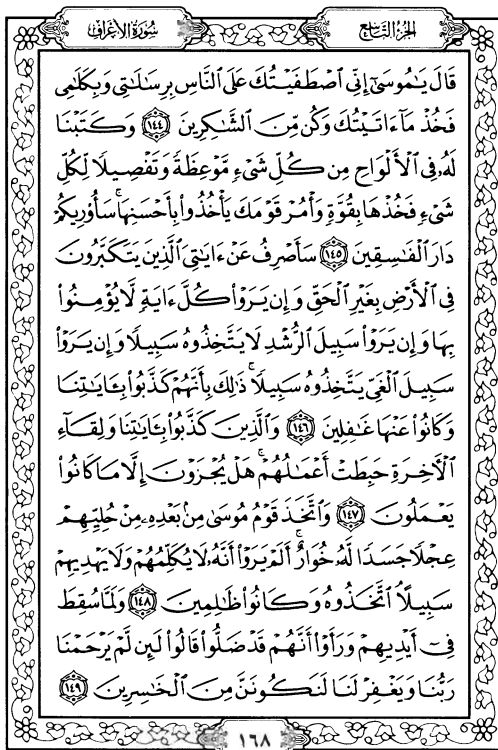 الجزء التاسع
سورة الأعراف
قَالَ يَٰمُوسَىٰٓ إِنِّي ٱصْطَفَيْتُكَ عَلَى ٱلنَّاسِ بِرِسَٰلَٰتِي وَبِكَلَٰمِي
فَخُذْ مَآ ءَاتَيْتُكَ وَكُن مِّنَ ٱلشَّٰكِرِينَ ١٤٤ وَكَتَبْنَا
لَهُۥ فِي ٱلْأَلْوَاحِ مِن كُلِّ شَيْءٍ مَّوْعِظَةً وَتَفْصِيلًا لِّكُلِّ
شَيْءٍ فَخُذْهَا بِقُوَّةٍ وَأْمُرْ قَوْمَكَ يَأْخُذُوا۟ بِأَحْسَنِهَا ۚ سَأُو۟رِيكُمْ
دَارَ ٱلْفَٰسِقِينَ ١٤٥ سَأَصْرِفُ عَنْ ءَايَٰتِيَ ٱلَّذِينَ يَتَكَبَّرُونَ
فِي ٱلْأَرْضِ بِغَيْرِ ٱلْحَقِّ وَإِن يَرَوْا۟ كُلَّ ءَايَةٍ لَّا يُؤْمِنُوا۟
بِهَا وَإِن يَرَوْا۟ سَبِيلَ ٱلرُّشْدِ لَا يَتَّخِذُوهُ سَبِيلًا وَإِن يَرَوْا۟
سَبِيلَ ٱلْغَيِّ يَتَّخِذُوهُ سَبِيلًا ۚ ذَٰلِكَ بِأَنَّهُمْ كَذَّبُوا۟ بِـَٔايَٰتِنَا
وَكَانُوا۟ عَنْهَا غَٰفِلِينَ ١٤٦ وَٱلَّذِينَ كَذَّبُوا۟ بِـَٔايَٰتِنَا وَلِقَآءِ
ٱلْأٓخِرَةِ حَبِطَتْ أَعْمَٰلُهُمْ ۚ هَلْ يُجْزَوْنَ إِلَّا مَا كَانُوا۟
يَعْمَلُونَ ١٤٧ وَٱتَّخَذَ قَوْمُ مُوسَىٰ مِنۢ بَعْدِهِۦ مِنْ حُلِيِّهِمْ
عِجْلًا جَسَدًا لَّهُۥ خُوَارٌ ۚ أَلَمْ يَرَوْا۟ أَنَّهُۥ لَا يُكَلِّمُهُمْ وَلَا يَهْدِيهِمْ
سَبِيلًا ۘ ٱتَّخَذُوهُ وَكَانُوا۟ ظَٰلِمِينَ ١٤٨ وَلَمَّا سُقِطَ
فِيٓ أَيْدِيهِمْ وَرَأَوْا۟ أَنَّهُمْ قَدْ ضَلُّوا۟ قَالُوا۟ لَئِن لَّمْ يَرْحَمْنَا
رَبُّنَا وَيَغْفِرْ لَنَا لَنَكُونَنَّ مِنَ ٱلْخَٰسِرِينَ ١٤٩
١٦٨